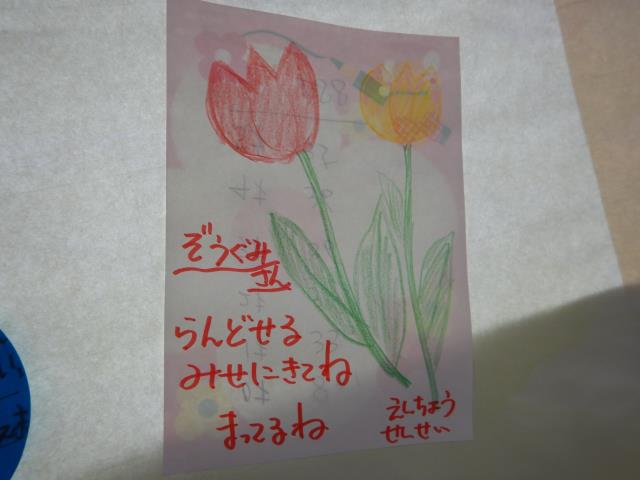 ぞうぐみ
さん
らんどせる
みせにきてね
まってるね
えんちょう
せんせい